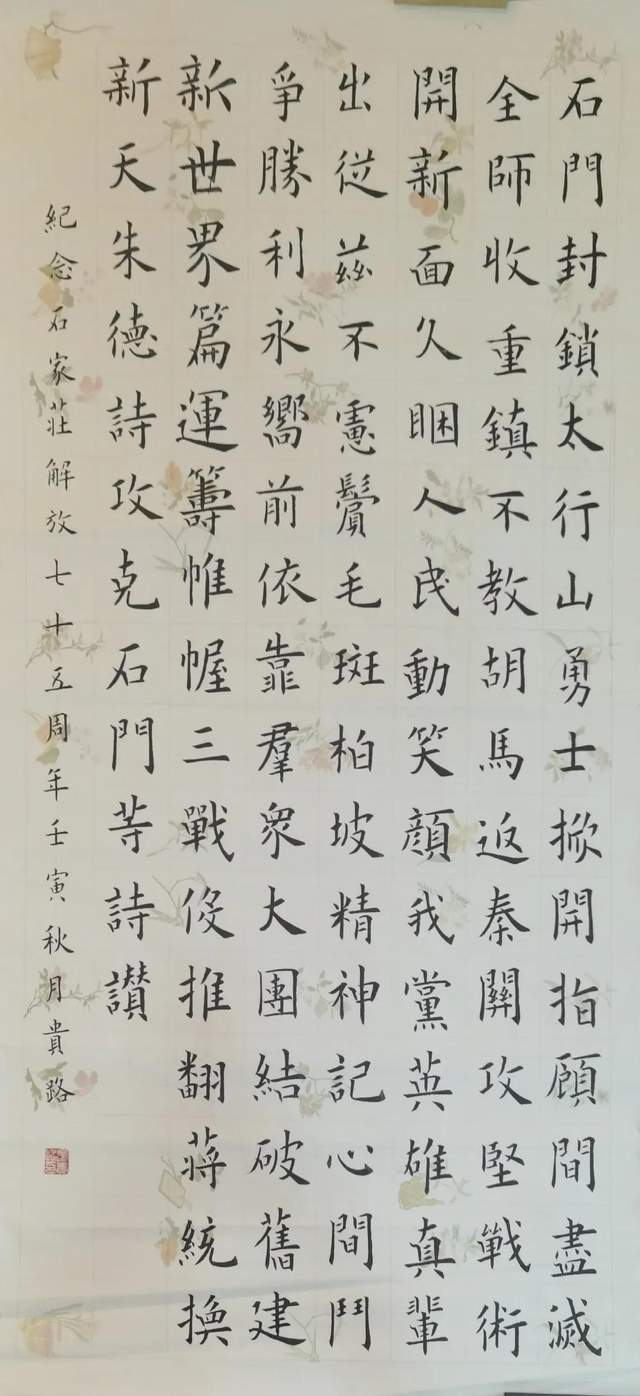 石門封鎖太行山勇士掀開指顧間盡滅
全師收重鎮不教胡馬返秦關攻堅戰術
開新面久困人民動笑顏我黨英雄真輩
出從茲不慮鬢毛斑柏坡精神記心間鬥
爭勝利永嚮前依靠羣眾大團結破舊建
新世界篇運籌帷幄三戰役推翻蔣統換
新天朱德詩攻克石門等詩讚
紀念石家莊解放七十五周年壬寅秋月貴路